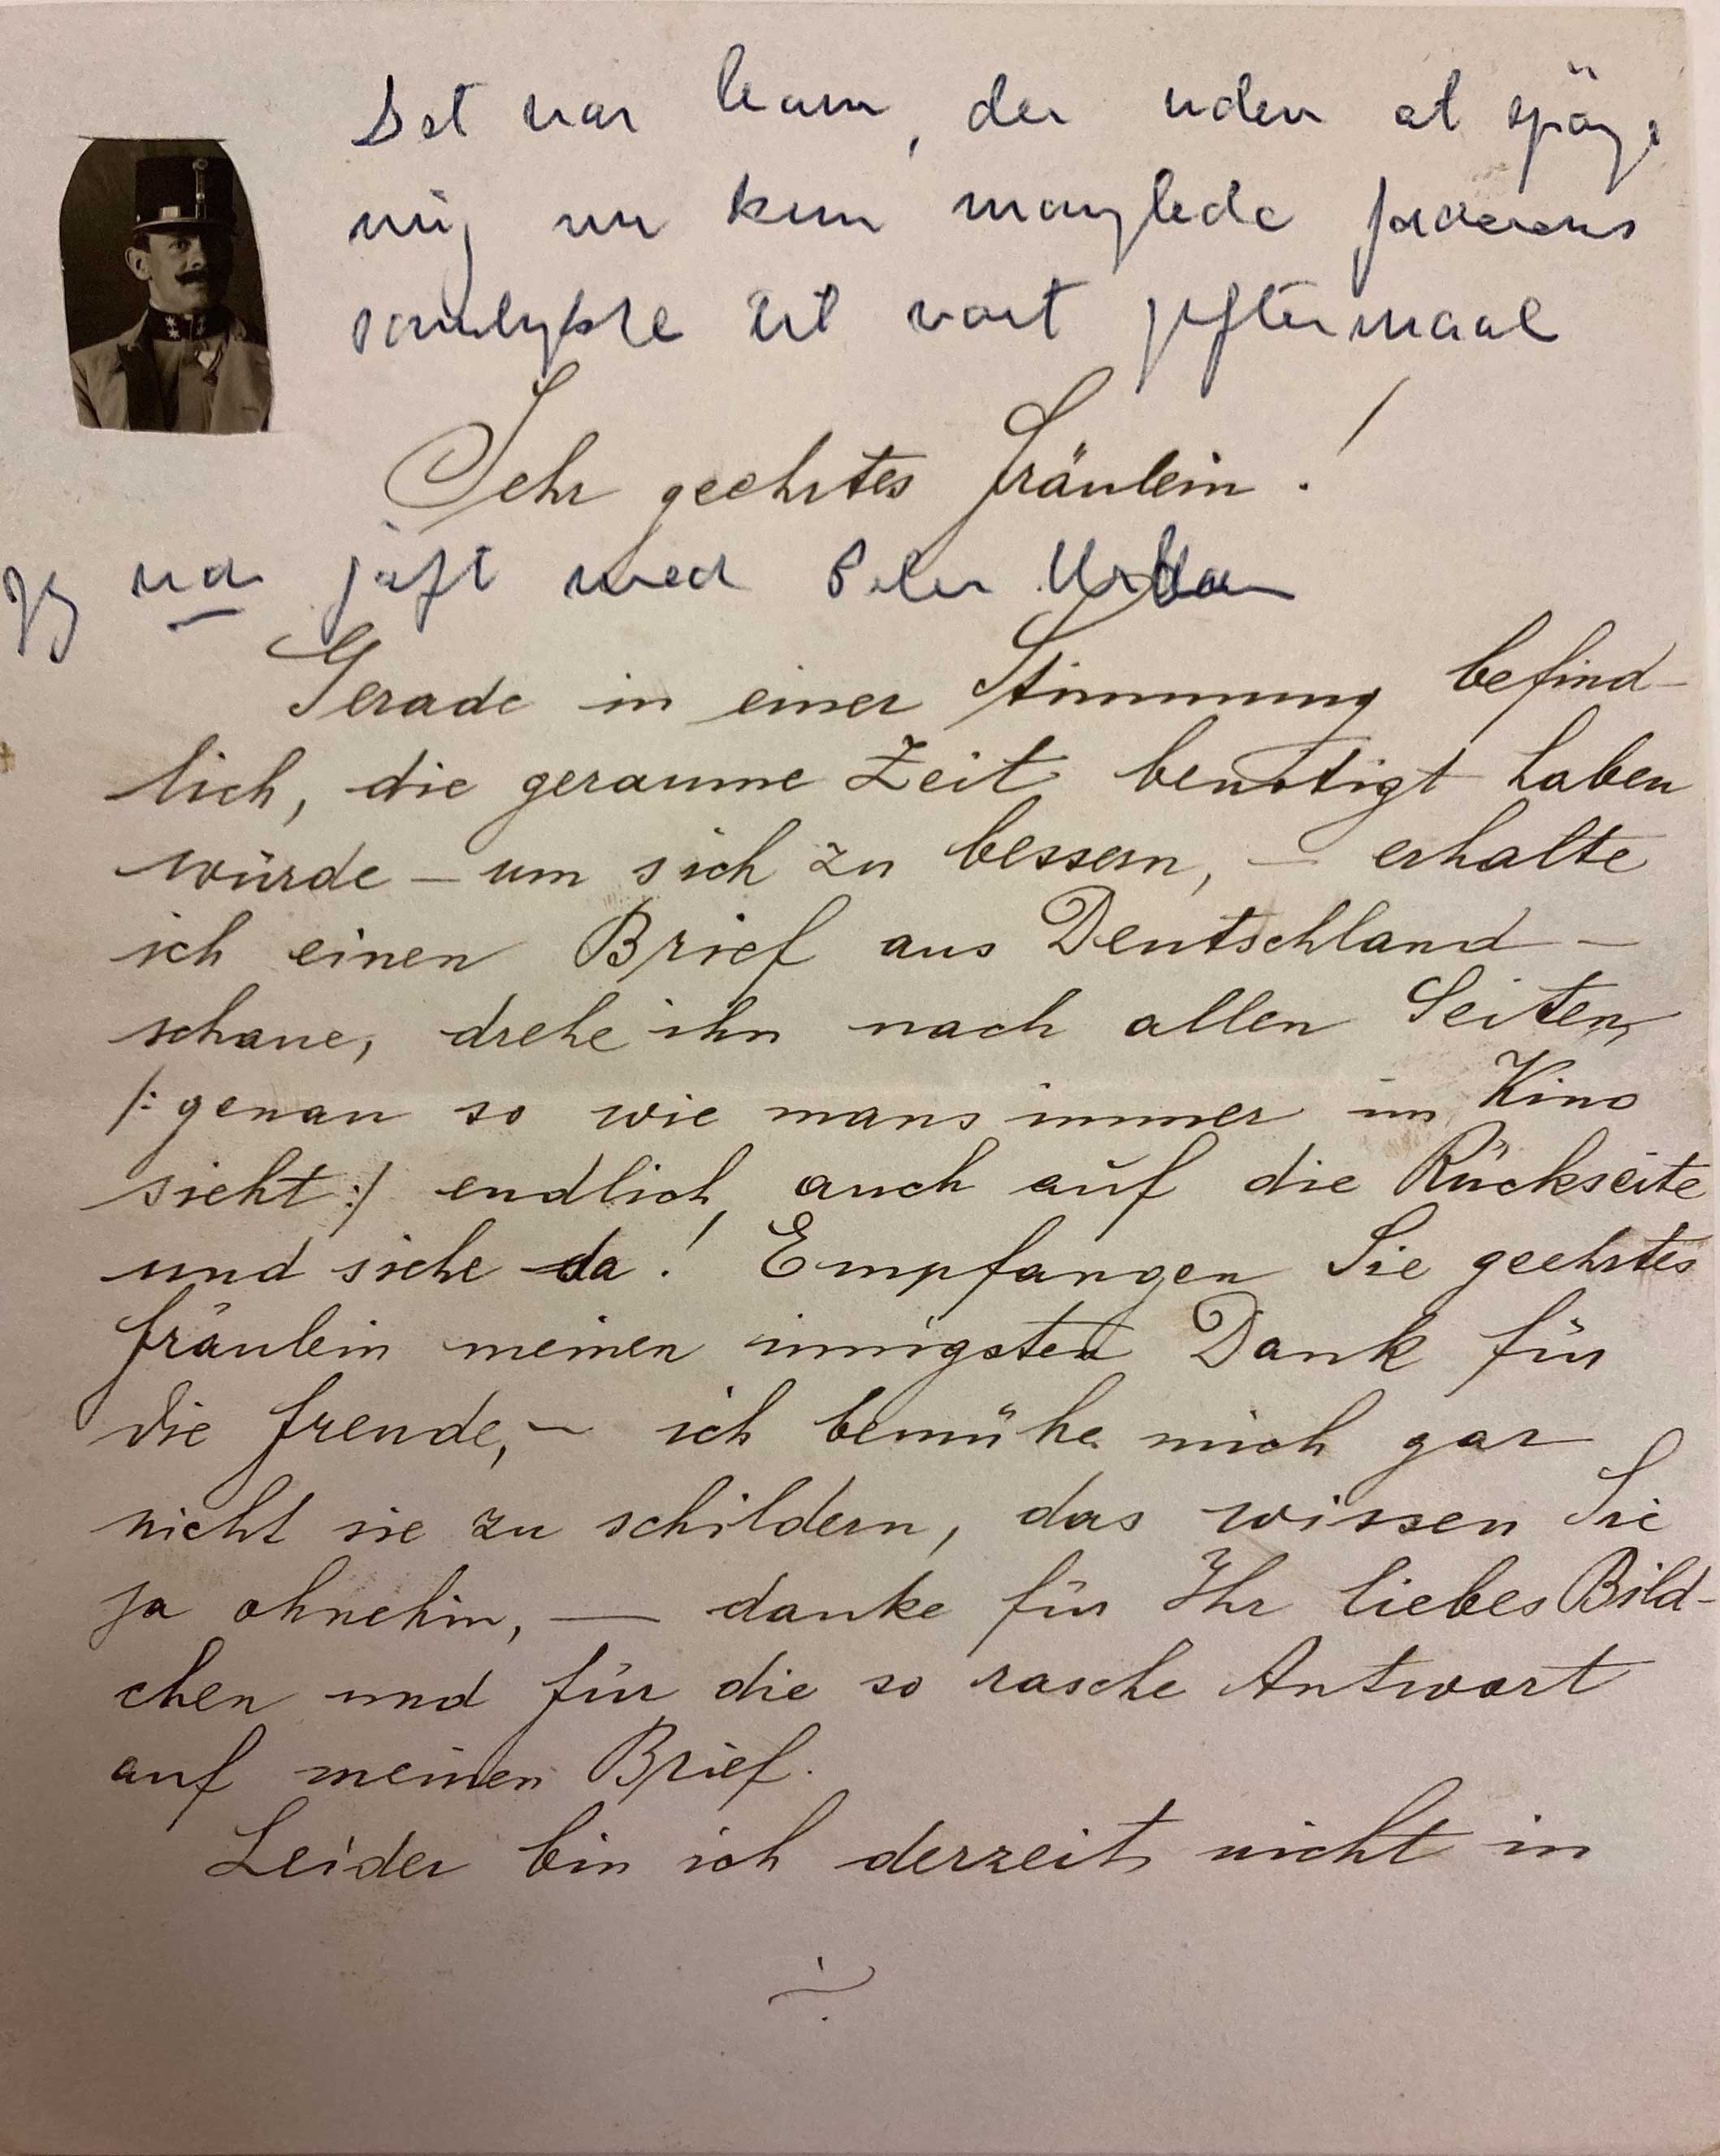 Det var ham, der uden at spörge
mig nu kun manglede faderens
samtykke til vort giftermaal
Sehr geehrtes Fräulein!
Jeg var gift med Peter Urban
Gerade in einer Stimmung befind-
lich, die geraume Zeit benötigt haben
würde – um sich zu bessern, – erhalte
ich einen Brief aus Deutschland –
schaue, drehe ihn nach allen Seiten,
/: genau so wie mans immer im Kino
sieht :/ endlich auch auf die Rückseite
und siehe da! Empfangen Sie geehrtes
Fräulein meinen innigsten Dank für
die Freude, – ich bemühe mich gar
nicht sie zu schildern, das wissen Sie
ja ohnehin, — danke für Ihr liebes Bild-
chen und für die so rasche Antwort
auf meinen Brief.
Leider bin ich derzeit nicht in